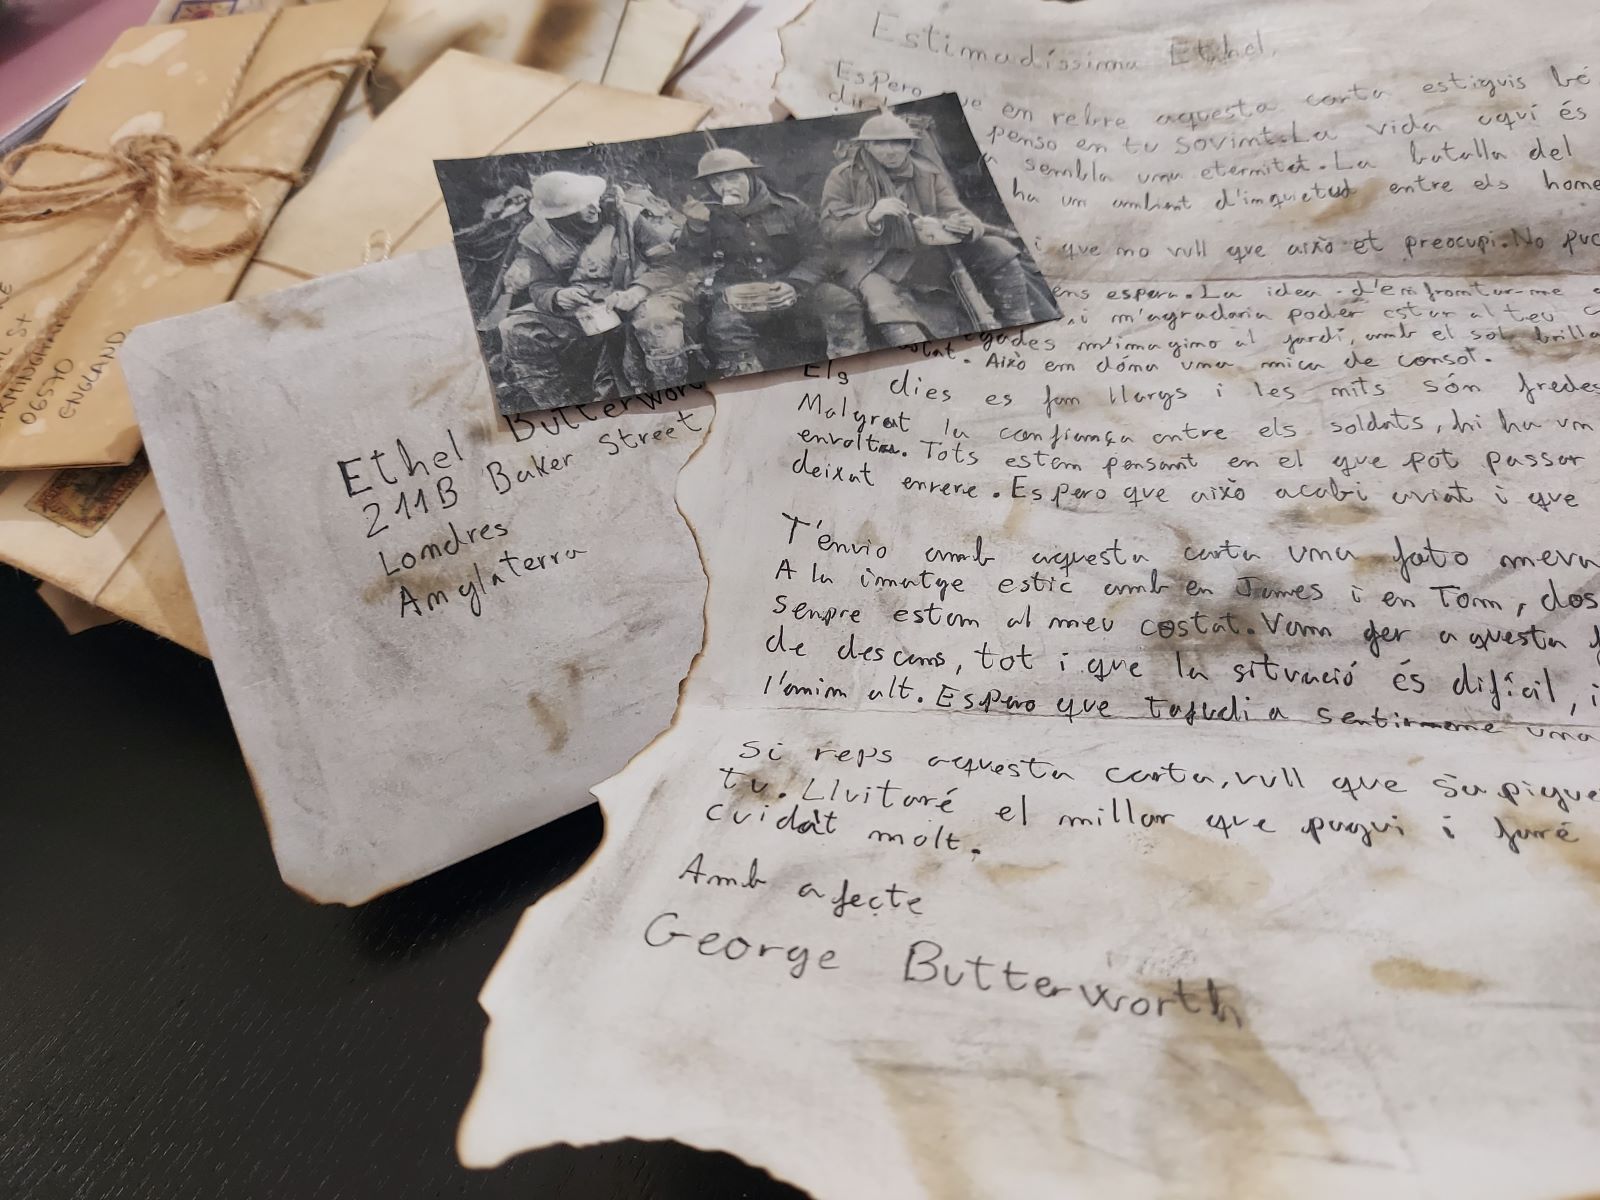 Estimadíssima Ethel,
Espero que en rebre aquesta carta estiguis bé
penso en tu sovint. La vida aquí és
sembla una eternitat. La batalla del
ha un ambient d'inquietud entre els home
i que no vull que això et preocupi. No puc
ens espera. La idea d'enfrontar-me
i m'agradaria poder estar al teu
m'imagino al jardí, amb el sol brilla
Això em dóna una mica de consol.
Els dies es fan llargs i les nits són fredes
Malgrat la confiança entre els soldats, hi ha un
envolta. Tots estem pensant en el que pot passar
deixat enrere. Espero que això acabi aviat i que
T'envio amb aquesta carta una foto meva
A la imatge estic amb en James i en Tom, dos
senpre estan al meu costat. Vam fer aquesta f
de descans, tot i que la situació és difícil, i
l'anim alt. Espero que t'ajudi a sentir-me una
Si reps aquesta carta, vull que sàpigue
tu. Lluitaré el millor que pugui i faré
Cuida't molt.
Amb afecte
George Butterworth
Ethel Butterwor
211B Baker Street
Londres
Anglaterra
St
06570
ENGLAND